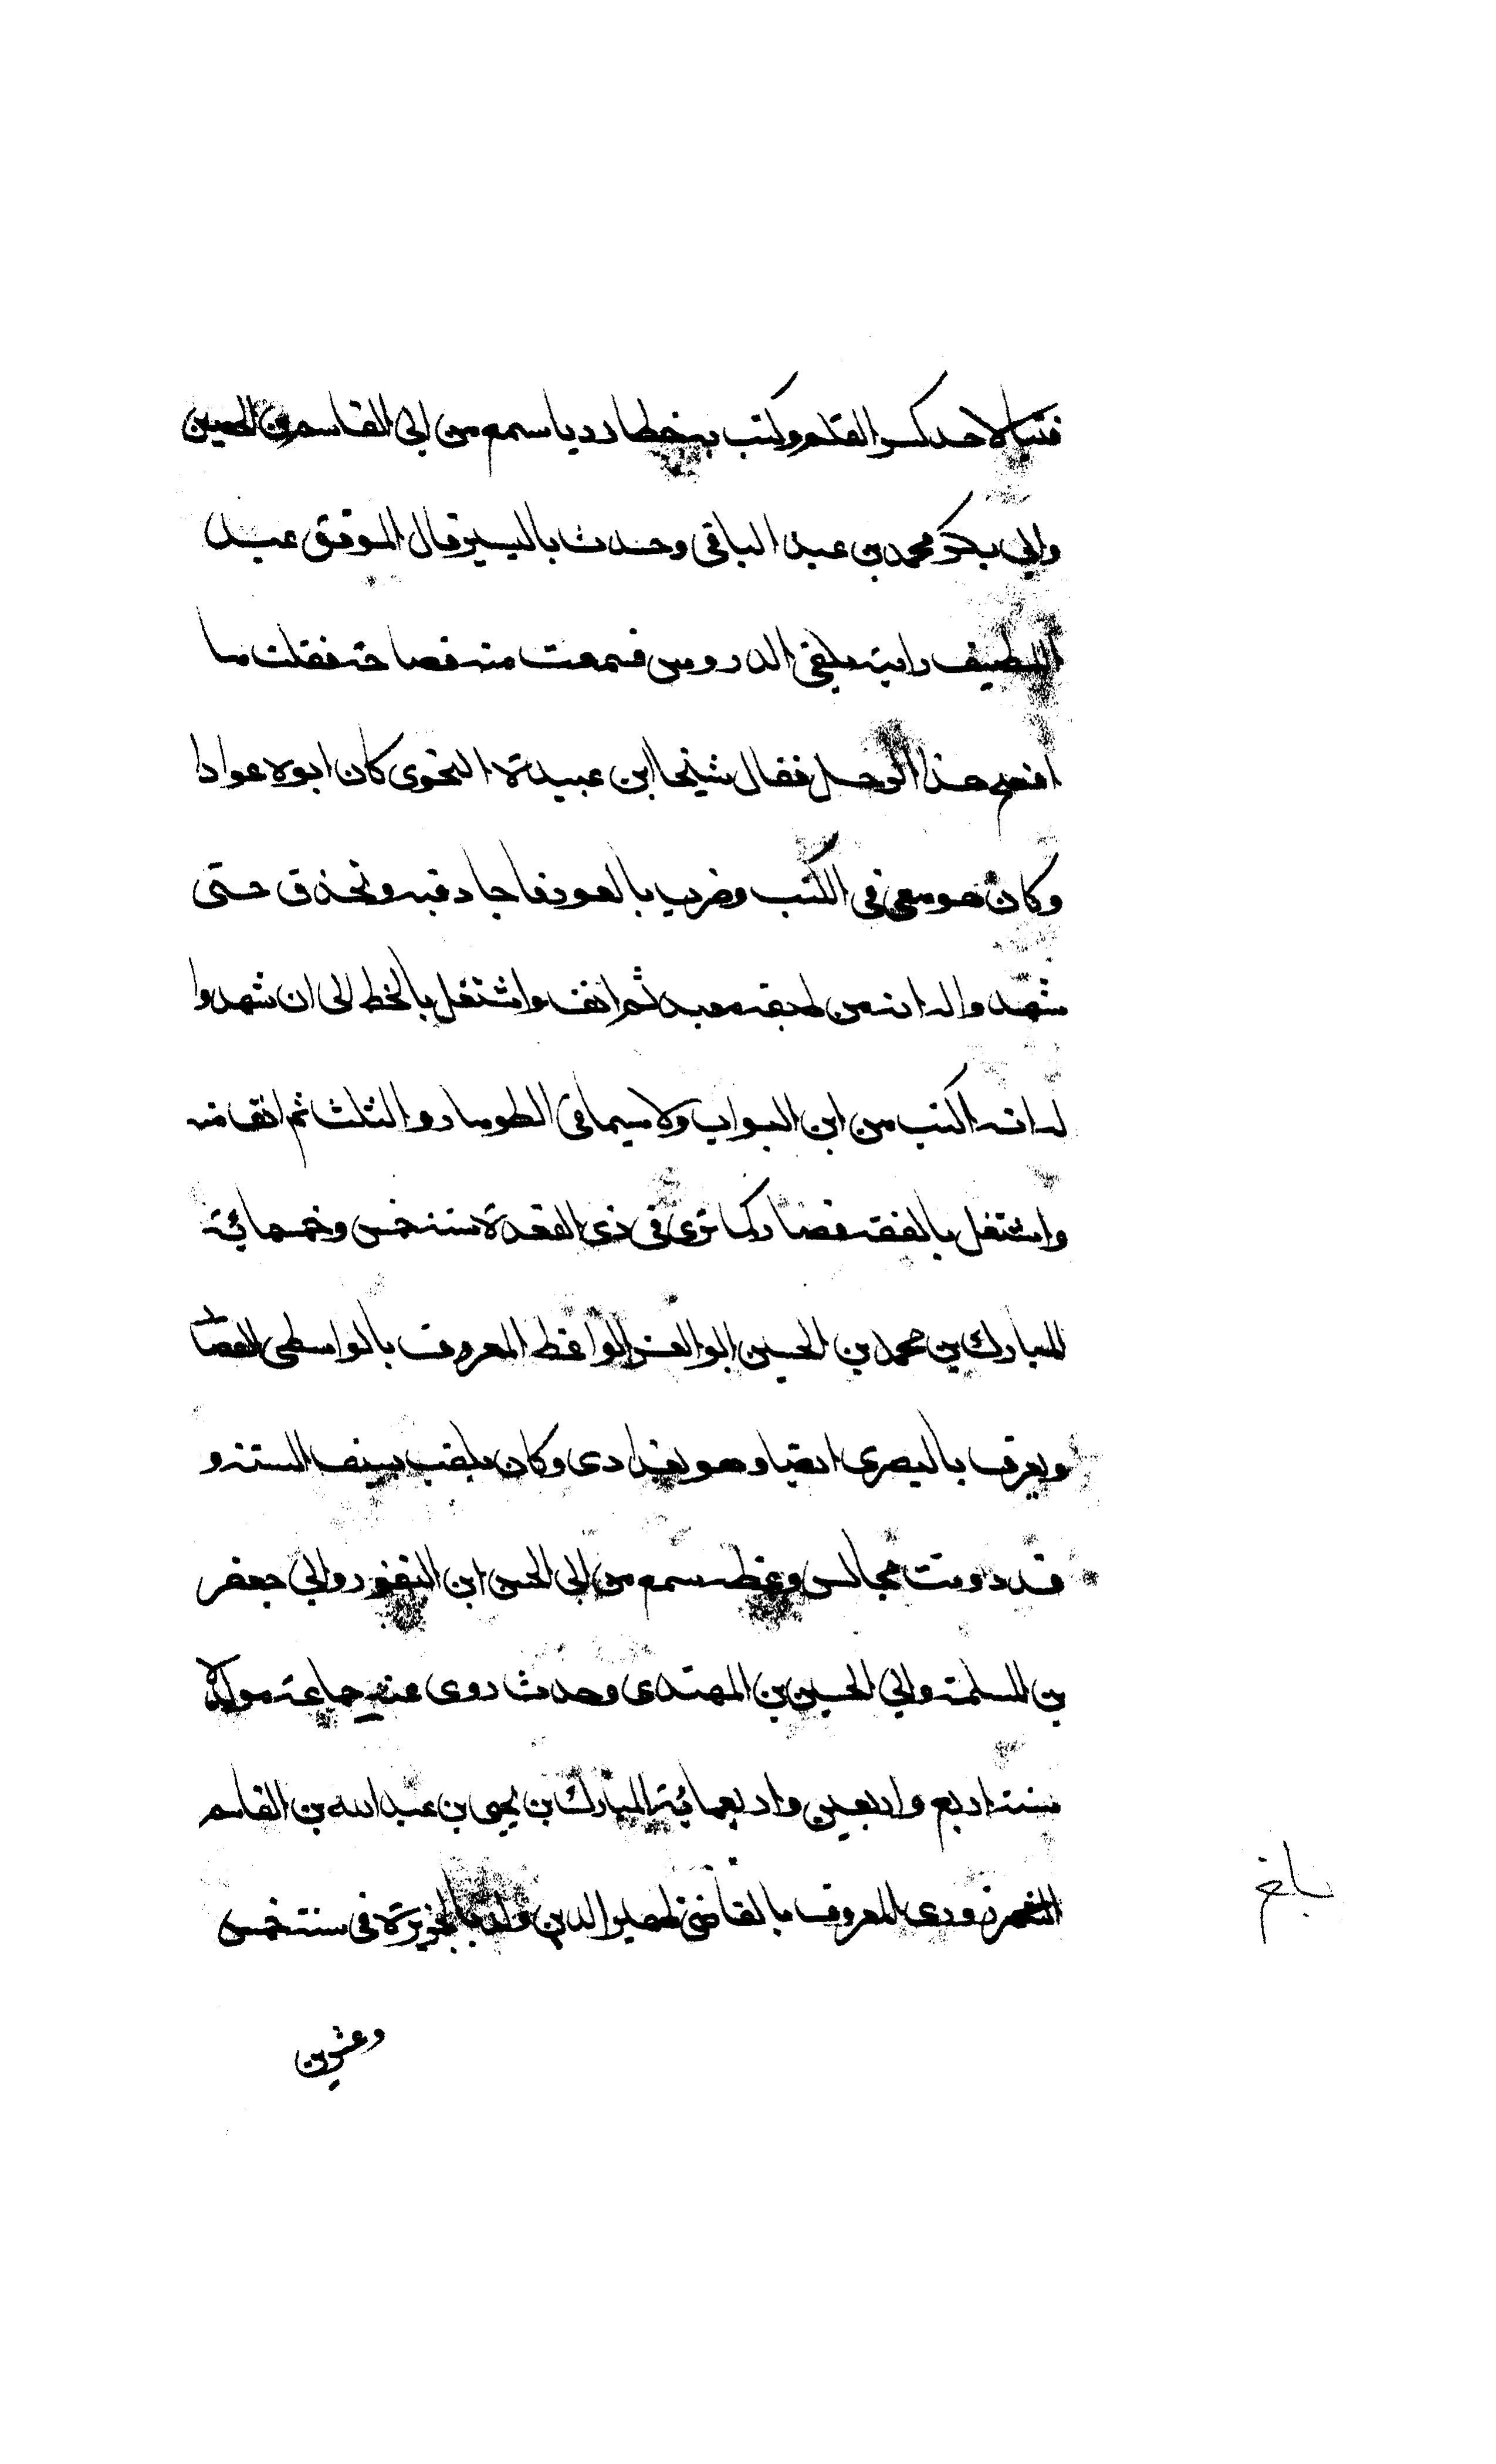 فتيا لاحد كسر القلم وكتب به خطا رديا سمع من ابي القاسم بن الحصين
وابي بكر محمد بن عبد الباقي وحدث باليسير قال الموفق عبد
اللطيف رايته يلقي الدروس فسمعت منه فصاحة فقلت ما
افصح هذا الرجل فقال شيخنا ابن عبيدة النحوي كان ابوه عوادا
وكان هو معي في المكتب وضرب بالعود فاجاد فيه وتحذق حتى
شهدوا له انه من طبقة معبد ثم انف واشتغل بالخط الى ان شهدوا
له انه اكتب من ابن البواب ولا سيما في الطومار والثلث ثم انف منه
واشتغل بالفقه فصار كما ترى في ذي القعدة سنة خمس وخمسمائة
المبارك بن محمد بن الحسين ابو العز الواعظ المعروف بالواسطي القصار
ويعرف بالبصري ايضا وهو بغدادي وكان يلقب بسيف السنة و
قد دونت مجالس وعظه سمع من ابي الحسين ابن النقور وابي جعفر
بن المسلمة وابي الحسين بن المهتدي وحدث روى عنه جماعة مولده
سنة اربع واربعين واربعمائة المبارك بن يحيى بن عبد الله بن القاسم
الشهرزوري المعروف بالقاضي نصير الدين ولد بالجزيرة في سنة خمس
وعشرين
بلغ